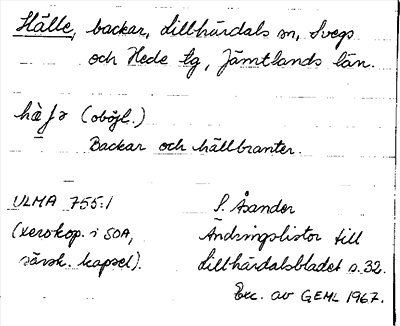 Hälle, backar, Lillhärdals sn, Svegs
och Hede tg, Jämtlands län.
hà̱ʃə (oböjl.)
Backar och hällbranter.
ULMA 755:1
(xerokop. i SOA,
särsk. kapsel).
S. Åsander
Ändringslistor till
Lillhärdalsbladet s. 32.
Exc. av GEML 1967.